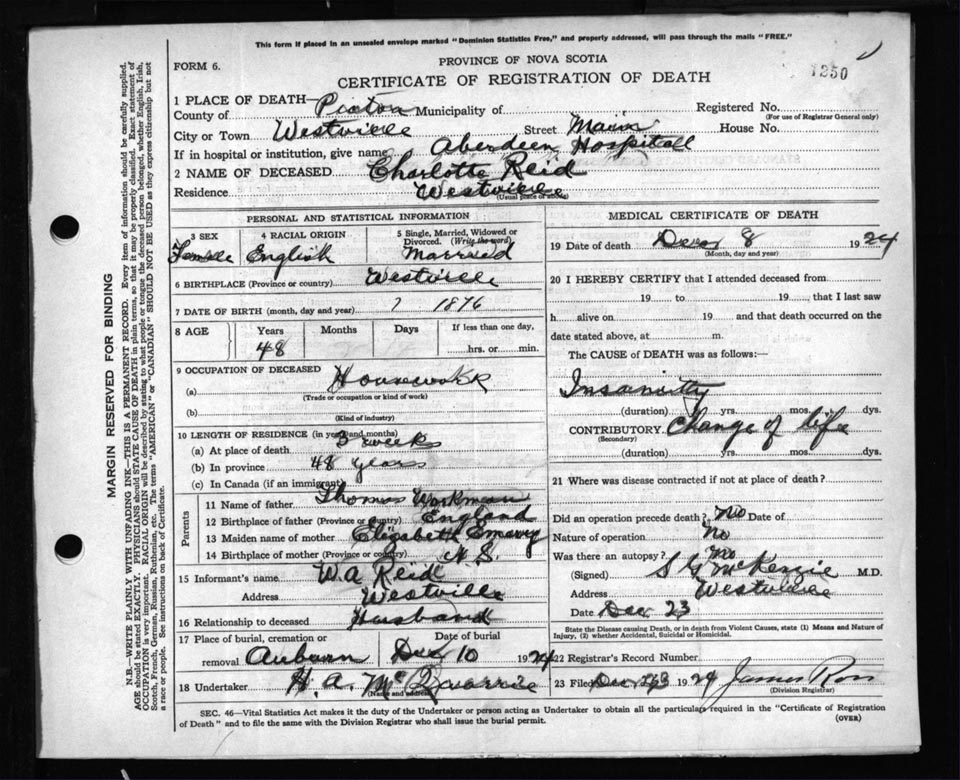 This form if placed in an unsealed envelope marked "Dominion Statistics Free," and properly addressed, will pass through the mails "FREE."
FORM 6.
PROVINCE OF NOVA SCOTIA
CERTIFICATE OF REGISTRATION OF DEATH
1250
1 PLACE OF DEATH—
County of Pictou Municipality of Registered No.
(For use of Registrar General only)
City or Town Westville Street Main House No.
If in hospital or institution, give name Aberdeen Hospitall
2 NAME OF DECEASED Charlotte Reid
Residence Westville
(Usual place of abode)
PERSONAL AND STATISTICAL INFORMATION
3 SEX 4 RACIAL ORIGIN 5 Single, Married, Widowed or Divorced. (Write the word)
Female English Married
6 BIRTHPLACE (Province or country) Westville
7 DATE OF BIRTH (month, day and year) ? 1876
8 AGE Years Months Days If less than one day,
48 hrs. or min.
9 OCCUPATION OF DECEASED
(a) Housework
(Trade or occupation or kind of work)
(b)
(Kind of industry)
10 LENGTH OF RESIDENCE (in years and months)
(a) At place of death 3 weeks
(b) In province 48 years
(c) In Canada (if an immigrant)
Parents
11 Name of father Thomas Workman
12 Birthplace of father (Province or country) England
13 Maiden name of mother Elizabeth Emery
14 Birthplace of mother (Province or country) N.S.
15 Informant's name W.A Reid
Address Westville
16 Relationship to deceased Husband
17 Place of burial, cremation or removal Auburn Date of burial Dec 10 1924
18 Undertaker H. A. Mc
(Name and
MEDICAL CERTIFICATE OF DEATH
19 Date of death Dec 8 1924
(Month, day and year)
20 I HEREBY CERTIFY that I attended deceased from
19 to 19 , that I last saw
h alive on 19 and that death occurred on the
date stated above, at m.
The CAUSE of DEATH was as follows:—
Insanitty
(duration) yrs. mos. dys.
CONTRIBUTORY Change of life
(Secondary)
(duration) yrs. mos. dys.
21 Where was disease contracted if not at place of death?
Did an operation precede death? No Date of
Nature of operation No
Was there an autopsy? No
(Signed) S G McKenzie M.D.
Address Westville
Date Dec 23
State the Disease causing Death, or in death from Violent Causes, state (1) Means and Nature of
Injury, (2) whether Accidental, Suicidal or Homicidal.
22 Registrar's Record Number
23 Filed Dec 1924 James Ross
(Division Registrar)
SEC. 46—Vital Statistics Act makes it the duty of the Undertaker or person acting as Undertaker to obtain all the particulars required in the "Certificate of Registration
of Death" and to file the same with the Division Registrar who shall issue the burial permit.
(OVER)
MARGIN RESERVED FOR BINDING
N.B.—WRITE PLAINLY WITH UNFADING INK—THIS IS A PERMANENT RECORD. Every item of information should be carefully supplied.
AGE should be stated EXACTLY. PHYSICIANS should STATE CAUSE OF DEATH in plain terms, so that it may be properly classified. Exact statement of
OCCUPATION is very important. RACIAL ORIGIN will be described by stating to what people or tongue the deceased person belonged, whether English, Irish,
Scotch, French, German, Russian, Ruthenian, etc. The terms "AMERICAN" or "CANADIAN" SHOULD NOT BE USED as they express citizenship but not
a race or people. See instructions on back of Certificate.